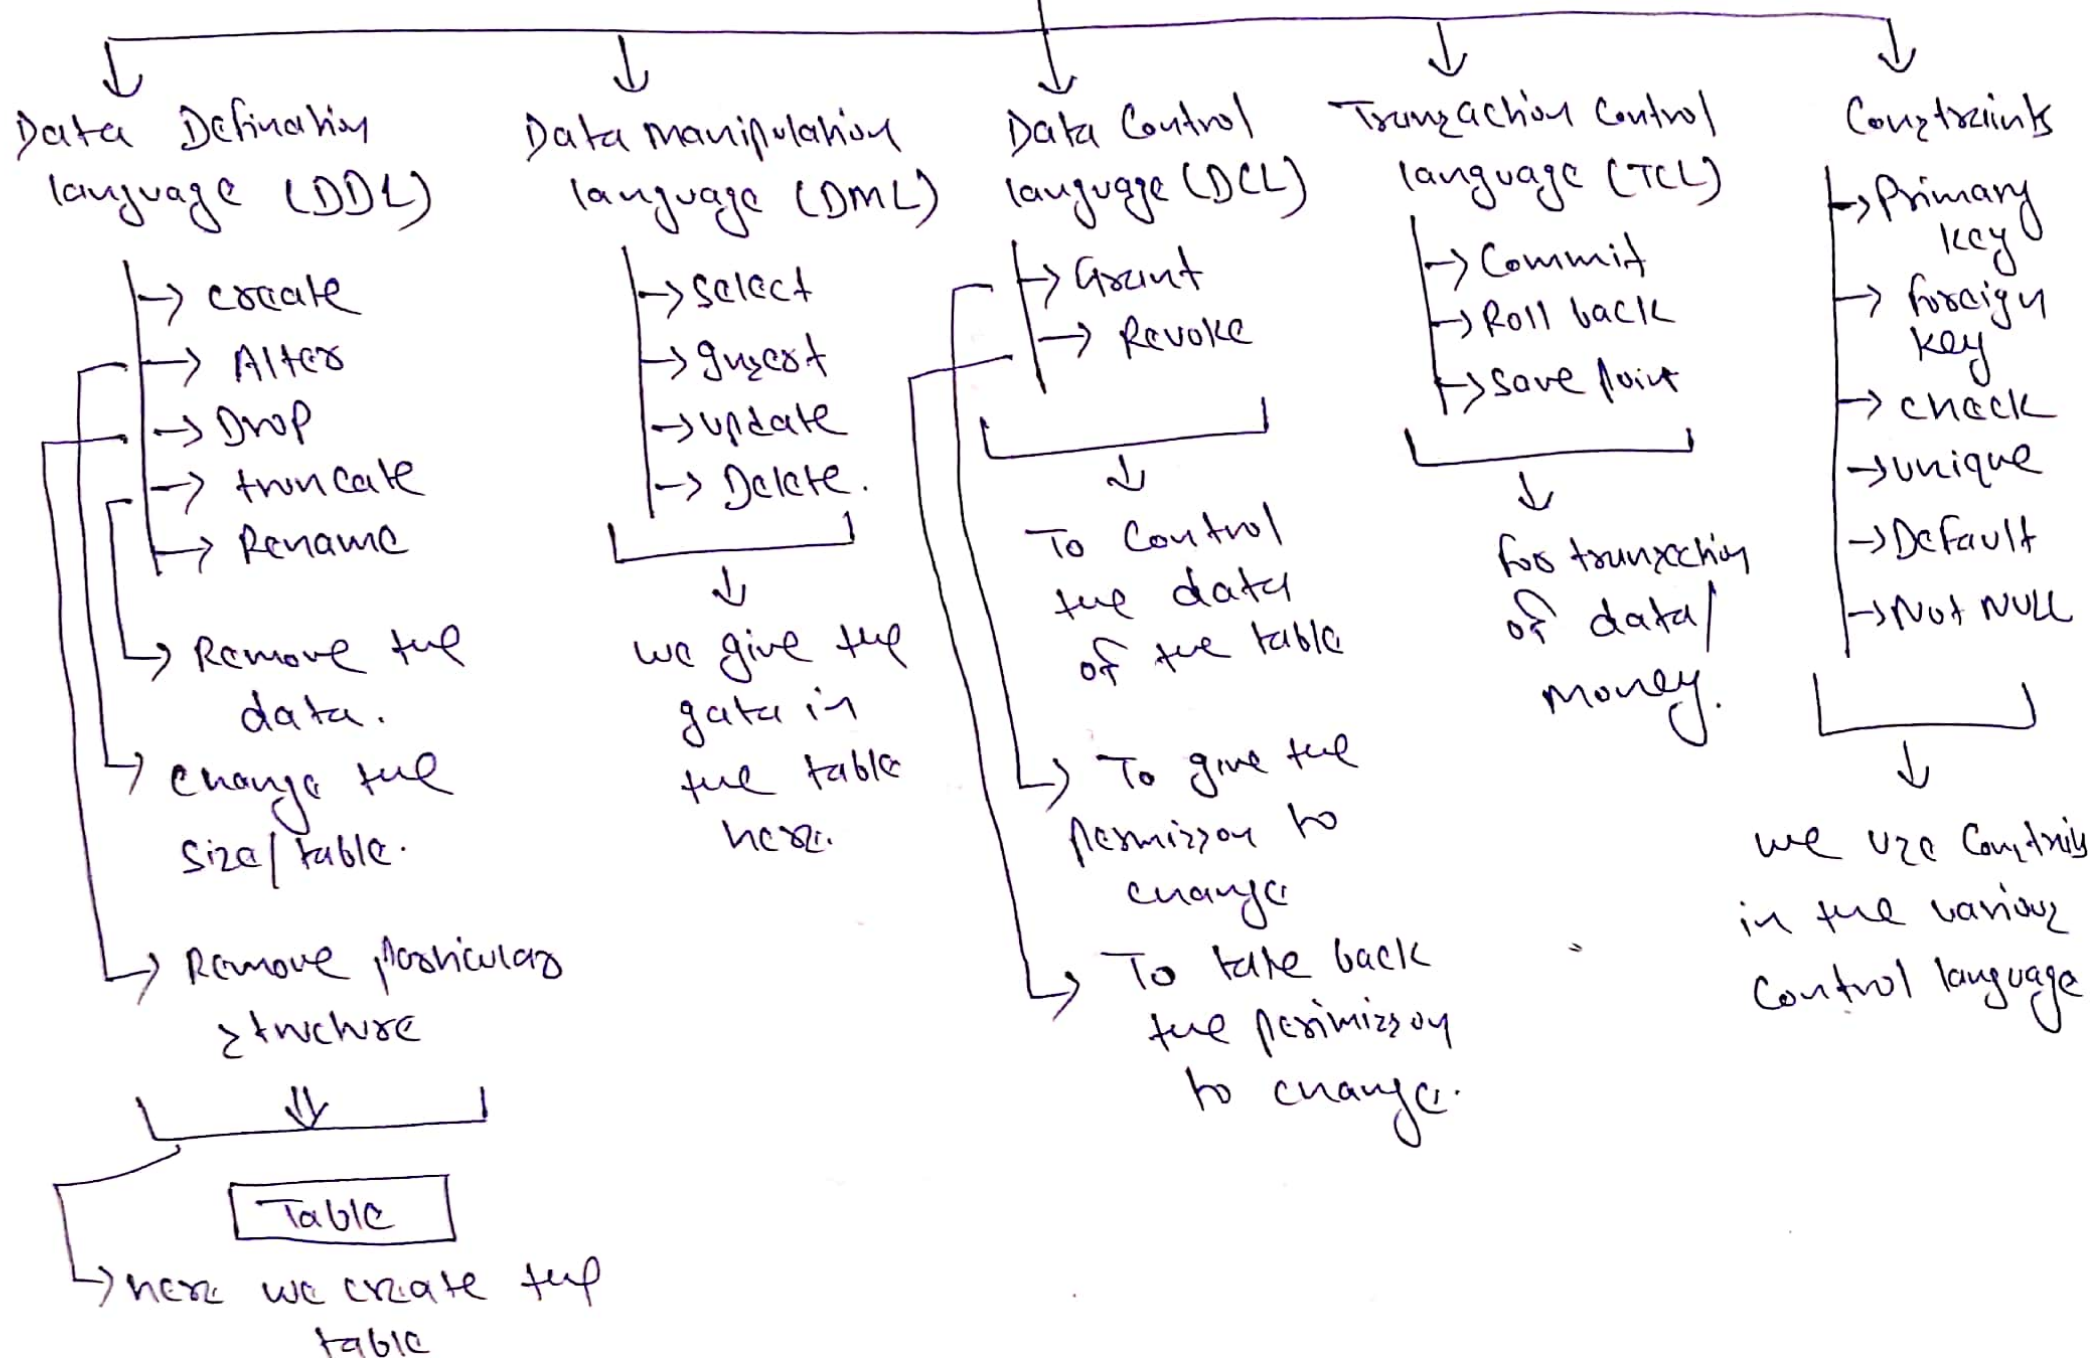 Data Defination
language (DDL)
→ create
→ Alter
→ Drop
→ truncate
→ Rename
Remove the
data.
change the
size/table.
Remove particular
structure
Table
here we create the
table
Data manipulation
language (DML)
→ select
→ Insert
→ update
→ Delete.
we give the
gata in
the table
here.
Data Control
language (DCL)
→ Grant
→ Revoke
To Control
the data
of the table
To give the
permisson to
change
To take back
the perimisson
to change.
Tranzaction Control
language (TCL)
→ Commit
→ Roll back
→ save point
for
of data/
money.
Constraints
→ Primary
key
→ foreign
key
→ check
→ unique
→ Default
→ Not NULL
we use
in the various
Control language